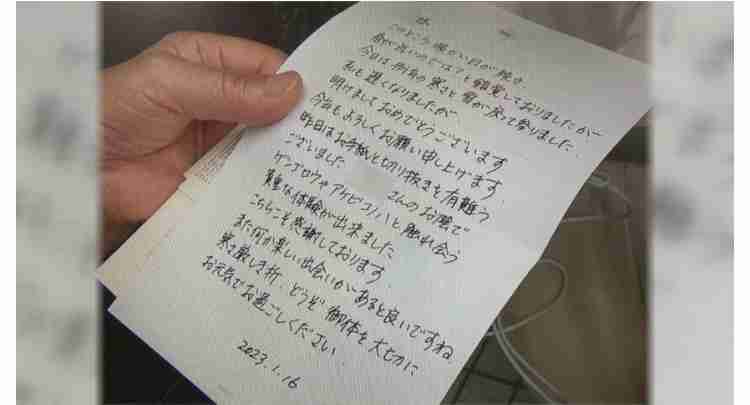 このところ暖かい日が続き、
春が近いのでは?と錯覚しておりましたが
今日は例年の寒さと雪が戻って参りました。
私も遅くなりましたが
明けましておめでとうございます
今年もよろしくお願い申し上げます
昨日はお手紙と切り抜きを有難う
ございました さんのお陰で
ゲンゴロウやアケビコノハと触れ合う
貴重な体験が出来ました
こちらこそ感謝しております。
また何か楽しい出会いがあると良いですね
寒さ厳しき折、どうぞ御体を大切に
お元気でお過ごしください
2023.1.16